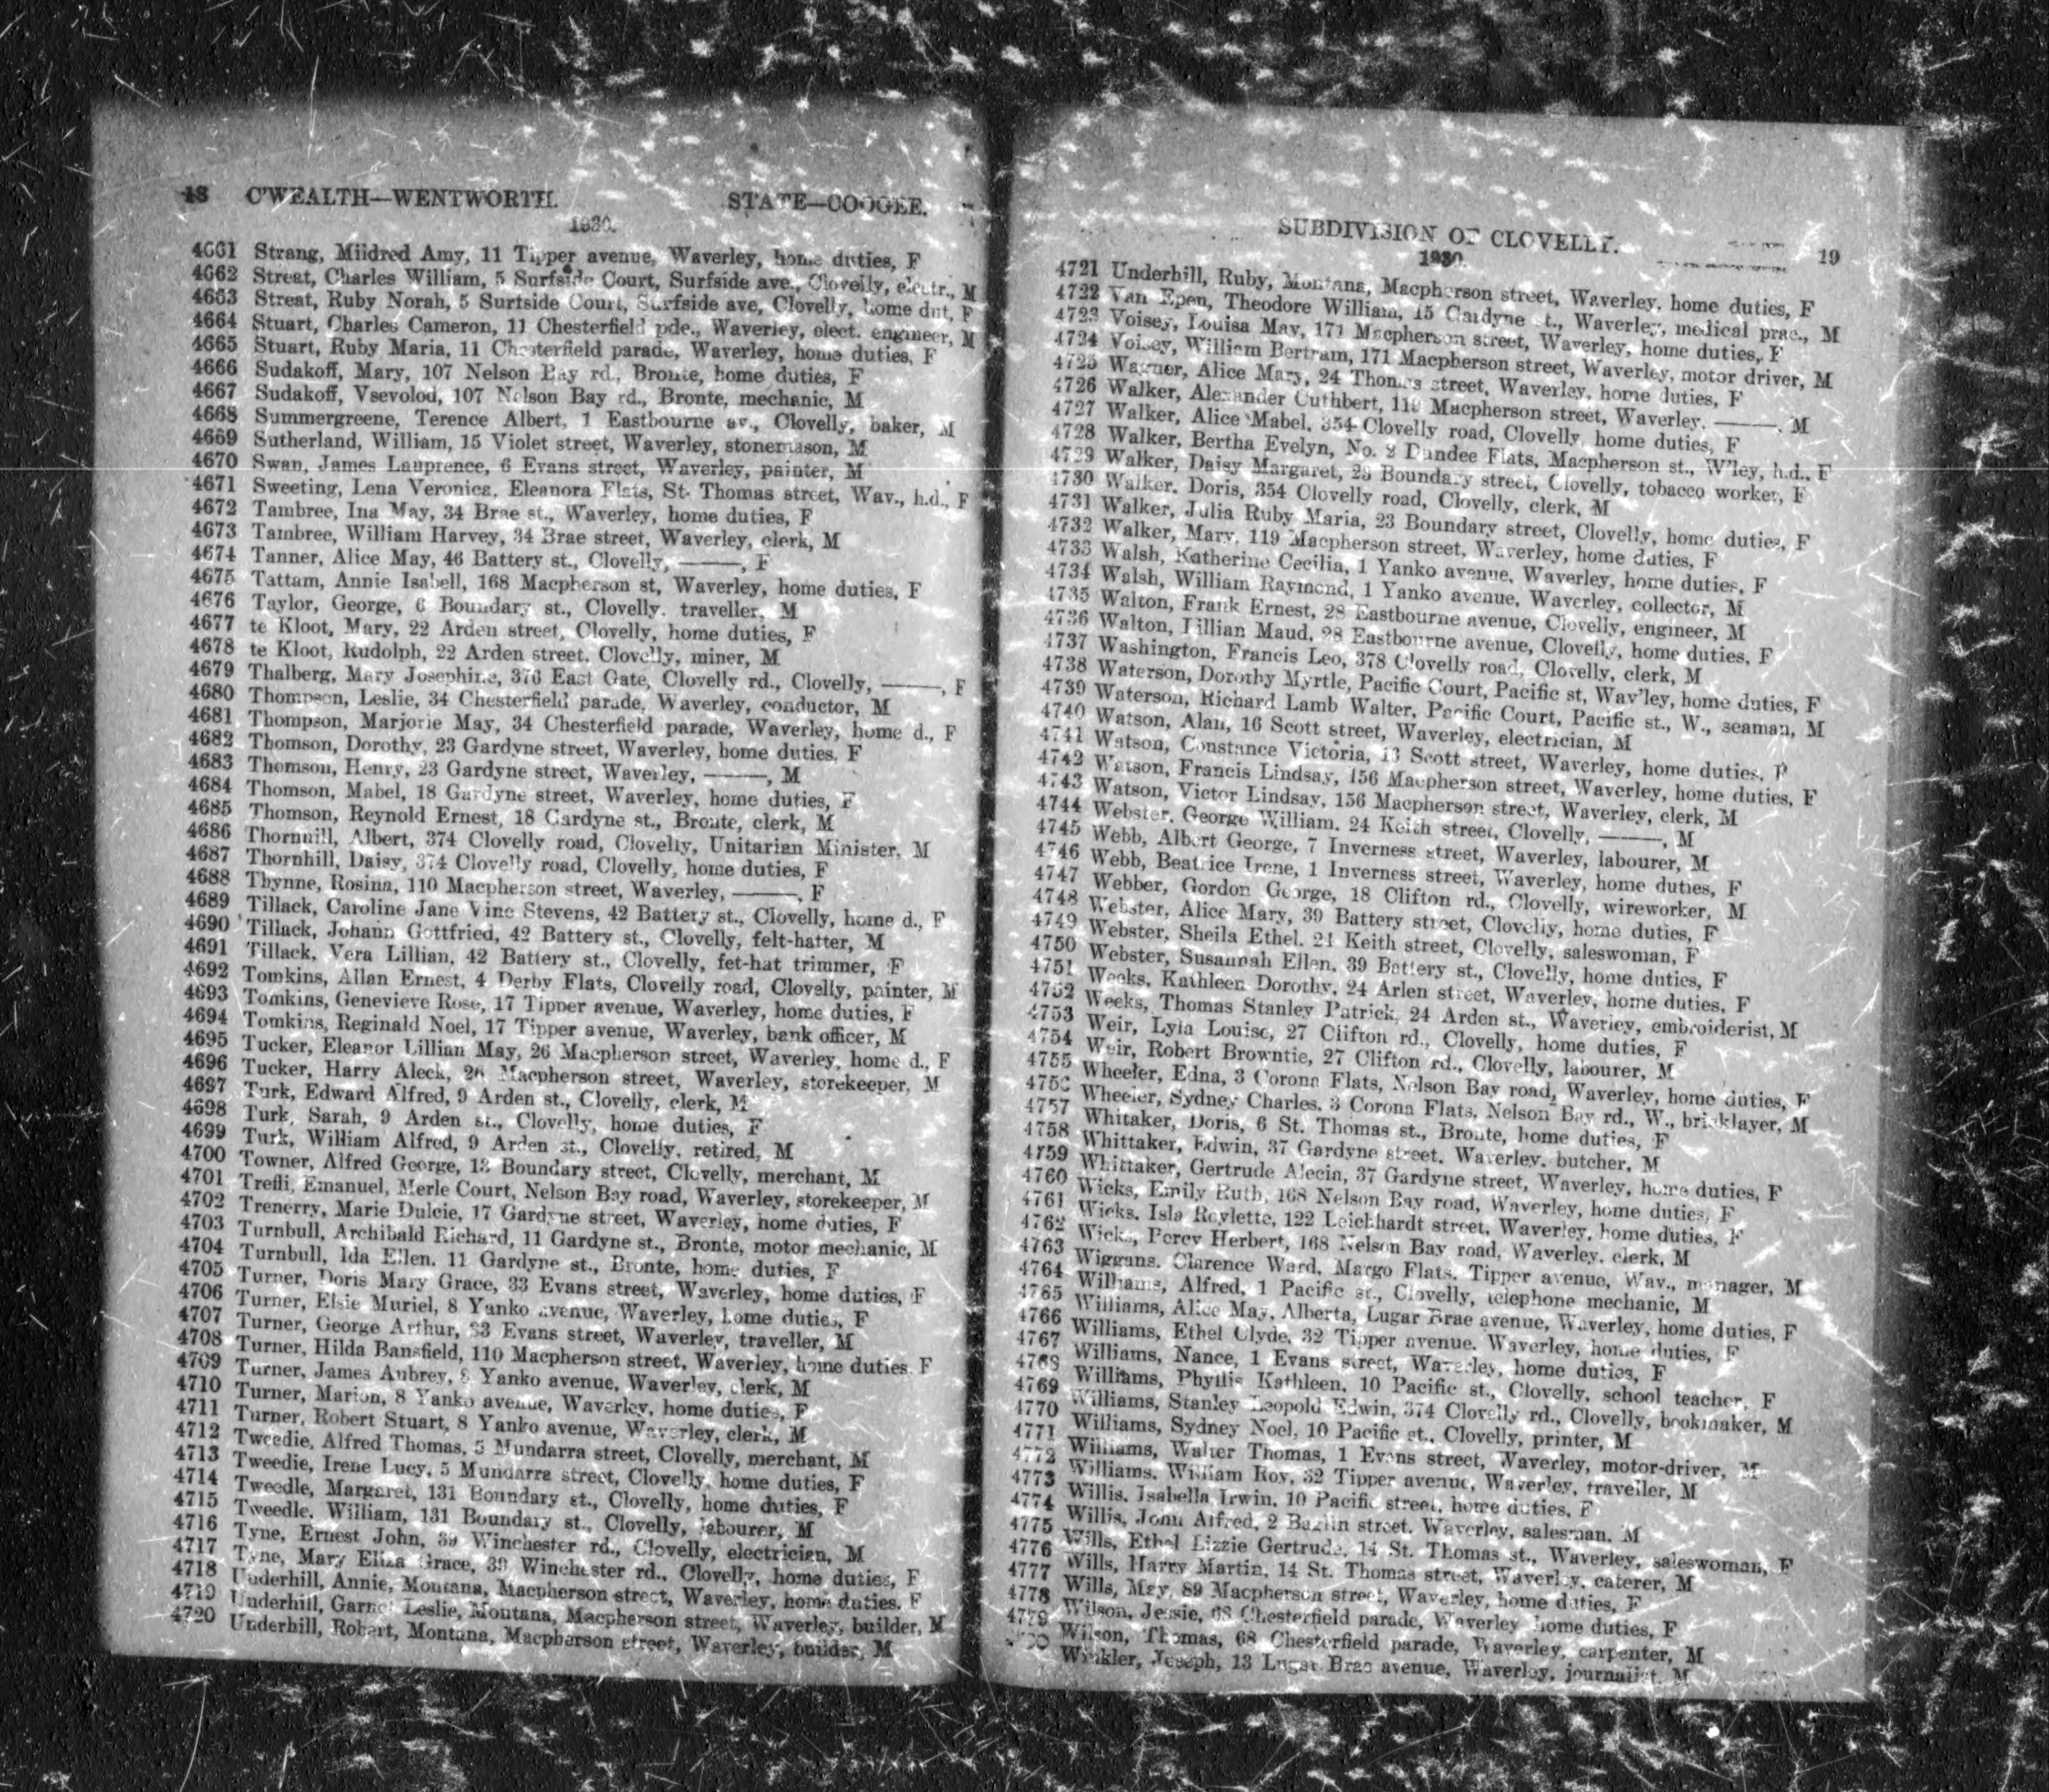 18 C'WEALTH—WENTWORTH. STATE—COOGEE.
1930.
4661 Strang, Mildred Amy, 11 Tipper avenue, Waverley, home duties, F
4662 Streat, Charles William, 5 Surfside Court, Surfside ave., Clovelly, electr., M
4663 Streat, Ruby Norah, 5 Surfside Court, Surfside ave, Clovelly, home dut, F
4664 Stuart, Charles Cameron, 11 Chesterfield pde., Waverley, elect. engineer, M
4665 Stuart, Ruby Maria, 11 Chesterfield parade, Waverley, home duties, F
4666 Sudakoff, Mary, 107 Nelson Bay rd., Bronte, home duties, F
4667 Sudakoff, Vsevolod, 107 Nelson Bay rd., Bronte, mechanic, M
4668 Summergreene, Terence Albert, 1 Eastbourne av., Clovelly, baker, M
4669 Sutherland, William, 15 Violet street, Waverley, stonemason, M
4670 Swan, James Lauprence, 6 Evans street, Waverley, painter, M
4671 Sweeting, Lena Veronica, Eleanora Flats, St. Thomas street, Wav., h.d., F
4672 Tambree, Ina May, 34 Brae st., Waverley, home duties, F
4673 Tambree, William Harvey, 34 Brae street, Waverley, clerk, M
4674 Tanner, Alice May, 46 Battery st., Clovelly, ———, F
4675 Tattam, Annie Isabell, 168 Macpherson st, Waverley, home duties, F
4676 Taylor, George, 6 Boundary st., Clovelly, traveller, M
4677 te Kloot, Mary, 22 Arden street, Clovelly, home duties, F
4678 te Kloot, Rudolph, 22 Arden street, Clovelly, miner, M
4679 Thalberg, Mary Josephine, 376 East Gate, Clovelly rd., Clovelly, ———, F
4680 Thompson, Leslie, 34 Chesterfield parade, Waverley, conductor, M
4681 Thompson, Marjorie May, 34 Chesterfield parade, Waverley, home d., F
4682 Thomson, Dorothy, 23 Gardyne street, Waverley, home duties, F
4683 Thomson, Henry, 23 Gardyne street, Waverley, ———, M
4684 Thomson, Mabel, 18 Gardyne street, Waverley, home duties, F
4685 Thomson, Reynold Ernest, 18 Gardyne st., Bronte, clerk, M
4686 Thornhill, Albert, 374 Clovelly road, Clovelly, Unitarian Minister, M
4687 Thornhill, Daisy, 374 Clovelly road, Clovelly, home duties, F
4688 Thynne, Rosina, 110 Macpherson street, Waverley, ———, F
4689 Tillack, Caroline Jane Vine Stevens, 42 Battery st., Clovelly, home d., F
4690 Tillack, Johann Gottfried, 42 Battery st., Clovelly, felt-hatter, M
4691 Tillack, Vera Lillian, 42 Battery st., Clovelly, fet-hat trimmer, F
4692 Tomkins, Allan Ernest, 4 Derby Flats, Clovelly road, Clovelly, painter, M
4693 Tomkins, Genevieve Rose, 17 Tipper avenue, Waverley, home duties, F
4694 Tomkins, Reginald Noel, 17 Tipper avenue, Waverley, bank officer, M
4695 Tucker, Eleanor Lillian May, 26 Macpherson street, Waverley, home d., F
4696 Tucker, Harry Aleck, 26 Macpherson street, Waverley, storekeeper, M
4697 Turk, Edward Alfred, 9 Arden st., Clovelly, clerk, M
4698 Turk, Sarah, 9 Arden st., Clovelly, home duties, F
4699 Turk, William Alfred, 9 Arden st., Clovelly, retired, M
4700 Towner, Alfred George, 13 Boundary street, Clovelly, merchant, M
4701 Trefli, Emanuel, Merle Court, Nelson Bay road, Waverley, storekeeper, M
4702 Trenerry, Marie Dulcie, 17 Gardyne street, Waverley, home duties, F
4703 Turnbull, Archibald Richard, 11 Gardyne st., Bronte, motor mechanic, M
4704 Turnbull, Ida Ellen, 11 Gardyne st., Bronte, home duties, F
4705 Turner, Doris Mary Grace, 33 Evans street, Waverley, home duties, F
4706 Turner, Elsie Muriel, 8 Yanko avenue, Waverley, home duties, F
4707 Turner, George Arthur, 33 Evans street, Waverley, traveller, M
4708 Turner, Hilda Bansfield, 110 Macpherson street, Waverley, home duties, F
4709 Turner, James Aubrey, 8 Yanko avenue, Waverley, clerk, M
4710 Turner, Marion, 8 Yanko avenue, Waverley, home duties, F
4711 Turner, Robert Stuart, 8 Yanko avenue, Waverley, clerk, M
4712 Tweedie, Alfred Thomas, 5 Mundarra street, Clovelly, merchant, M
4713 Tweedie, Irene Lucy, 5 Mundarra street, Clovelly, home duties, F
4714 Tweedle, Margaret, 131 Boundary st., Clovelly, home duties, F
4715 Tweedle, William, 131 Boundary st., Clovelly, labourer, M
4716 Tyne, Ernest John, 39 Winchester rd., Clovelly, electrician, M
4717 Tyne, Mary Eliza Grace, 39 Winchester rd., Clovelly, home duties, F
4718 Underhill, Annie, Montana, Macpherson street, Waverley, home duties, F
4719 Underhill, Garnet Leslie, Montana, Macpherson street, Waverley, builder, M
4720 Underhill, Robert, Montana, Macpherson street, Waverley, builder, M
SUBDIVISION OF CLOVELLY. 19
1930.
4721 Underhill, Ruby, Montana, Macpherson street, Waverley, home duties, F
4722 Van Epen, Theodore William, 15 Gardyne st., Waverley, medical prac., M
4723 Voisey, Louisa May, 171 Macpherson street, Waverley, home duties, F
4724 Voisey, William Bertram, 171 Macpherson street, Waverley, motor driver, M
4725 Wagner, Alice Mary, 24 Thomas street, Waverley, home duties, F
4726 Walker, Alexander Cuthbert, 119 Macpherson street, Waverley, ———, M
4727 Walker, Alice Mabel, 354 Clovelly road, Clovelly, home duties, F
4728 Walker, Bertha Evelyn, No. 2 Dundee Flats, Macpherson st., W'ley, h.d., F
4729 Walker, Daisy Margaret, 23 Boundary street, Clovelly, tobacco worker, F
4730 Walker, Doris, 354 Clovelly road, Clovelly, clerk, M
4731 Walker, Julia Ruby Maria, 23 Boundary street, Clovelly, home duties, F
4732 Walker, Mary, 119 Macpherson street, Waverley, home duties, F
4733 Walsh, Katherine Cecilia, 1 Yanko avenue, Waverley, home duties, F
4734 Walsh, William Raymond, 1 Yanko avenue, Waverley, collector, M
4735 Walton, Frank Ernest, 28 Eastbourne avenue, Clovelly, engineer, M
4736 Walton, Lillian Maud, 28 Eastbourne avenue, Clovelly, home duties, F
4737 Washington, Francis Leo, 378 Clovelly road, Clovelly, clerk, M
4738 Waterson, Dorothy Myrtle, Pacific Court, Pacific st, Wav'ley, home duties, F
4739 Waterson, Richard Lamb Walter, Pacific Court, Pacific st., W., seaman, M
4740 Watson, Alan, 16 Scott street, Waverley, electrician, M
4741 Watson, Constance Victoria, 13 Scott street, Waverley, home duties, F
4742 Watson, Francis Lindsay, 156 Macpherson street, Waverley, home duties, F
4743 Watson, Victor Lindsay, 156 Macpherson street, Waverley, clerk, M
4744 Webster, George William, 24 Keith street, Clovelly, ———, M
4745 Webb, Albert George, 7 Inverness street, Waverley, labourer, M
4746 Webb, Beatrice Irene, 1 Inverness street, Waverley, home duties, F
4747 Webber, Gordon George, 18 Clifton rd., Clovelly, wireworker, M
4748 Webster, Alice Mary, 39 Battery street, Clovelly, home duties, F
4749 Webster, Sheila Ethel, 24 Keith street, Clovelly, saleswoman, F
4750 Webster, Susannah Ellen, 39 Battery st., Clovelly, home duties, F
4751 Weeks, Kathleen Dorothy, 24 Arlen street, Waverley, home duties, F
4752 Weeks, Thomas Stanley Patrick, 24 Arden st., Waverley, embroiderist, M
4753 Weir, Lyla Louise, 27 Clifton rd., Clovelly, home duties, F
4754 Weir, Robert Browntie, 27 Clifton rd., Clovelly, labourer, M
4755 Wheeler, Edna, 3 Corona Flats, Nelson Bay road, Waverley, home duties, F
4756 Wheeler, Sydney Charles, 3 Corona Flats, Nelson Bay rd., W., bricklayer, M
4757 Whitaker, Doris, 6 St. Thomas st., Bronte, home duties, F
4758 Whittaker, Edwin, 37 Gardyne street, Waverley, butcher, M
4759 Whittaker, Gertrude Alecia, 37 Gardyne street, Waverley, home duties, F
4760 Wicks, Emily Ruth, 168 Nelson Bay road, Waverley, home duties, F
4761 Wicks, Isla Roylette, 122 Leichhardt street, Waverley, home duties, F
4762 Wicks, Percy Herbert, 168 Nelson Bay road, Waverley, clerk, M
4763 Wiggans, Clarence Ward, Margo Flats, Tipper avenue, Wav., manager, M
4764 Williams, Alfred, 1 Pacific st., Clovelly, telephone mechanic, M
4765 Williams, Alice May, Alberta, Lugar Brae avenue, Waverley, home duties, F
4766 Williams, Ethel Clyde, 32 Tipper avenue, Waverley, home duties, F
4767 Williams, Nance, 1 Evans street, Waverley, home duties, F
4768 Williams, Phyllis Kathleen, 10 Pacific st., Clovelly, school teacher, F
4769 Williams, Stanley Leopold Edwin, 374 Clovelly rd., Clovelly, bookmaker, M
4770 Williams, Sydney Noel, 10 Pacific st., Clovelly, printer, M
4771 Williams, Walter Thomas, 1 Evans street, Waverley, motor-driver, M
4772 Williams, William Roy, 32 Tipper avenue, Waverley, traveller, M
4773 Willis, Isabella Irwin, 10 Pacific street, home duties, F
4774 Willis, John Alfred, 2 Barlin street, Waverley, salesman, M
4775 Wills, Ethel Lizzie Gertrude, 14 St. Thomas st., Waverley, saleswoman, F
4776 Wills, Harry Martin, 14 St. Thomas street, Waverley, caterer, M
4777 Wills, May, 89 Macpherson street, Waverley, home duties, F
4778 Wilson, Jessie, 68 Chesterfield parade, Waverley home duties, F
4779 Wilson, Thomas, 68 Chesterfield parade, Waverley, carpenter, M
Winkler, Joseph, 13 Lugar Brae avenue, Waverley, journalist, M